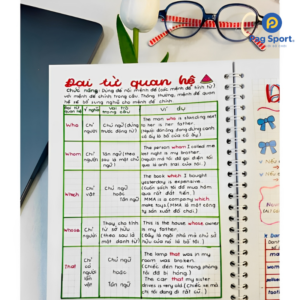 Pag Sport.
Đại từ quan hệ
Chức năng: Dùng để nối mệnh đề (các mệnh đề tính từ)
với mệnh đề chính trong câu. Thông thường, mệnh đề quan
hệ sẽ bổ sung nghĩa cho mệnh đề chính.
Đại từ quan hệ
Ý nghĩa
Vai trò trong câu
Ví dụ
Who
Chỉ người
Chủ ngữ (đứng trước động từ)
The man who is standing next
to her is her father.
(Người đàn ông đang đứng cạnh
cô ấy là bố của cô ấy).
Whom
Chỉ người
Tân ngữ (theo sau là một chủ ngữ)
The person whom I called me
last night is my brother.
Which
Chỉ vật
Chủ ngữ
hoặc
Tân ngữ
The book which I bought
yesterday is expensive.
(Cuốn sách tôi đã mua hôm
qua rất đắt tiền.)
MMA is a company which
make toys (MMA là một công
ty sản xuất đồ chơi.)
Whose
Chỉ người
Thay cho tính từ sở hữu
(theo sau là một danh từ)
This is the house whose owner
is my father.
(Đây là ngôi nhà mà chủ sở
hữu của nó là bố tôi.)
That
Chỉ cả người lẫn vật
Chủ ngữ
hoặc
tân ngữ
The lamp that was in my
room was broken.
(Chiếc đèn học trong phòng
tôi đã bị hỏng.)
The car that my sister
drives is very old (Chiếc xe mà
chị tôi đang đi rất cũ...)